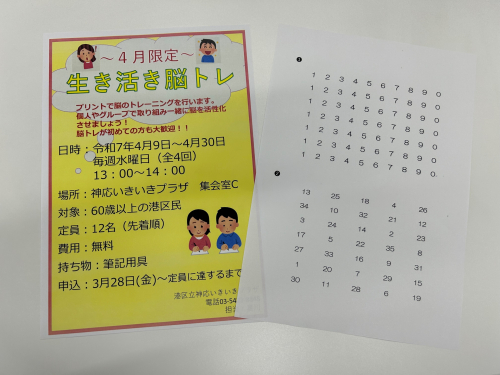 ～4月限定～
生き活き脳トレ
プリントで脳のトレーニングを行います。
個人やグループで取り組み一緒に脳を活性化
させましょう！
脳トレが初めての方も大歓迎！！
日時：令和7年4月9日～4月30日
毎週水曜日（全4回）
13：00～14：00
場所：神応いきいきプラザ　集会室C
対象：60歳以上の港区民
定員：12名（先着順）
費用：無料
持ち物：筆記用具
申込：3月28日(金)～定員に達するまで
港区立神応いきいき
電話03-54
担
❶
1 2 3 4 5 6 7 8 9 0
1 2 3 4 5 6 7 8 9 0
1 2 3 4 5 6 7 8 9 0
1 2 3 4 5 6 7 8 9 0
1 2 3 4 5 6 7 8 9 0
1 2 3 4 5 6 7 8 9 0
1 2 3 4 5 6 7 8 9 0
❷
13 25 18 4 26
34 10 32 21 12
3 24 14 2 23
17 5 22 35 8
27 33 16 9 31
1 20 7 29 15
30 11 28 6 19